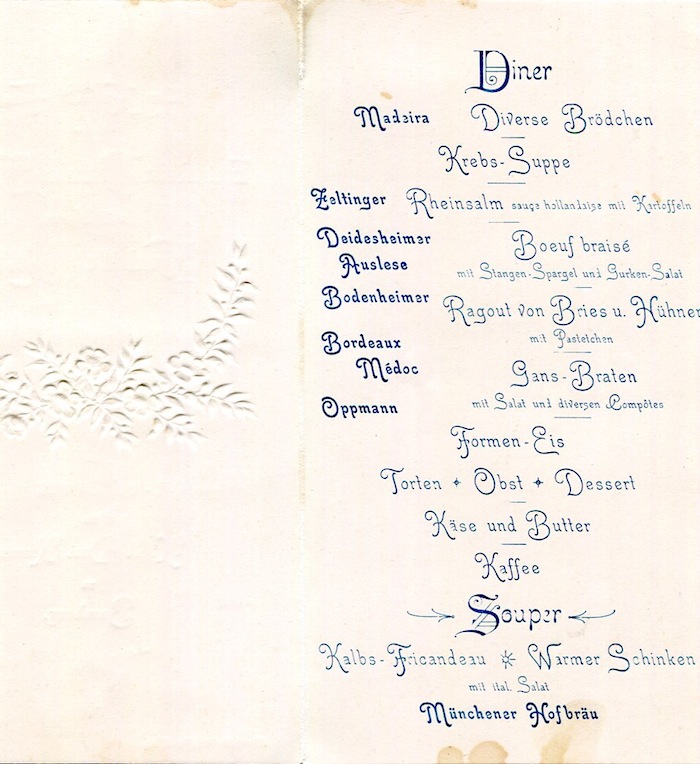 Diner
Madeira Diverse Brödchen
Krebs-Suppe
Zeltinger Rheinsalm sauçe hollandaise mit Kartoffeln
Deidesheimer Boeuf braisé
Auslese mit Stangen-Spargel und Gurken-Salat
Bodenheimer Ragout von Bries u. Hühner
mit Pastetchen
Bordeaux
Médoc Gans-Braten
Oppmann mit Salat und diversen Compôtes
Formen-Eis
Torten Obst Dessert
Käse und Butter
Kaffee
Souper
Kalbs-Fricandeau Warmer Schinken
mit ital. Salat
Münchener Hofbräu